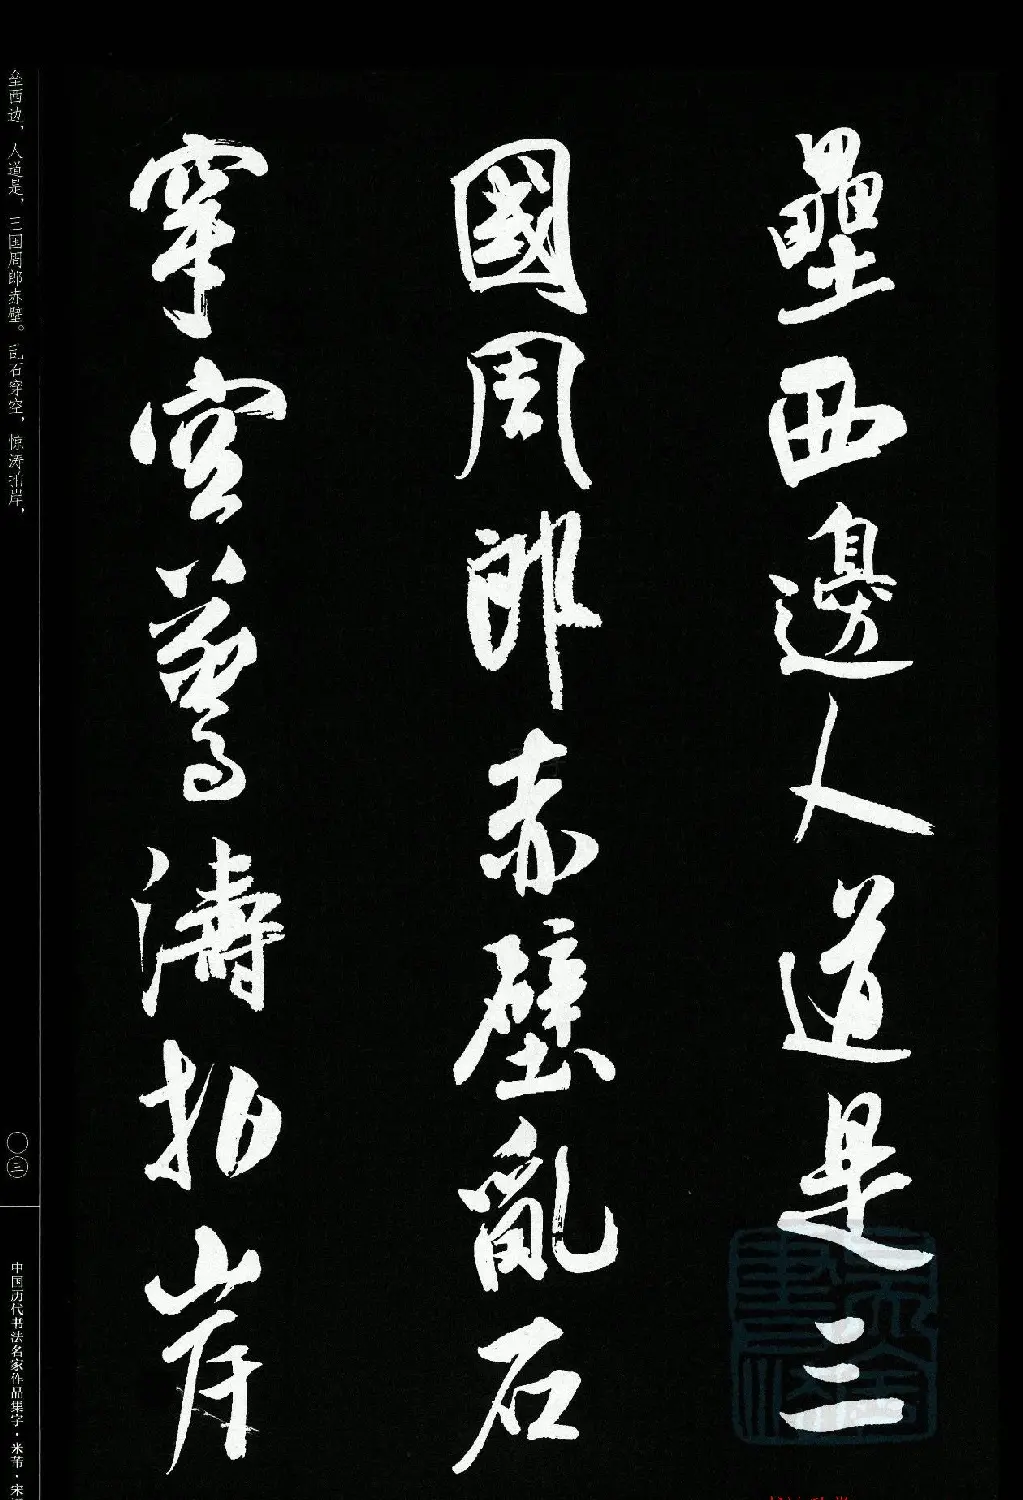 壘西邊人道是三
國周郎赤壁亂石
穿空驚濤拍岸
垒西边，人道是，三国周郎赤壁。乱石穿空，惊涛拍岸，
〇三
中国历代书法名家作品集字·米芾·宋